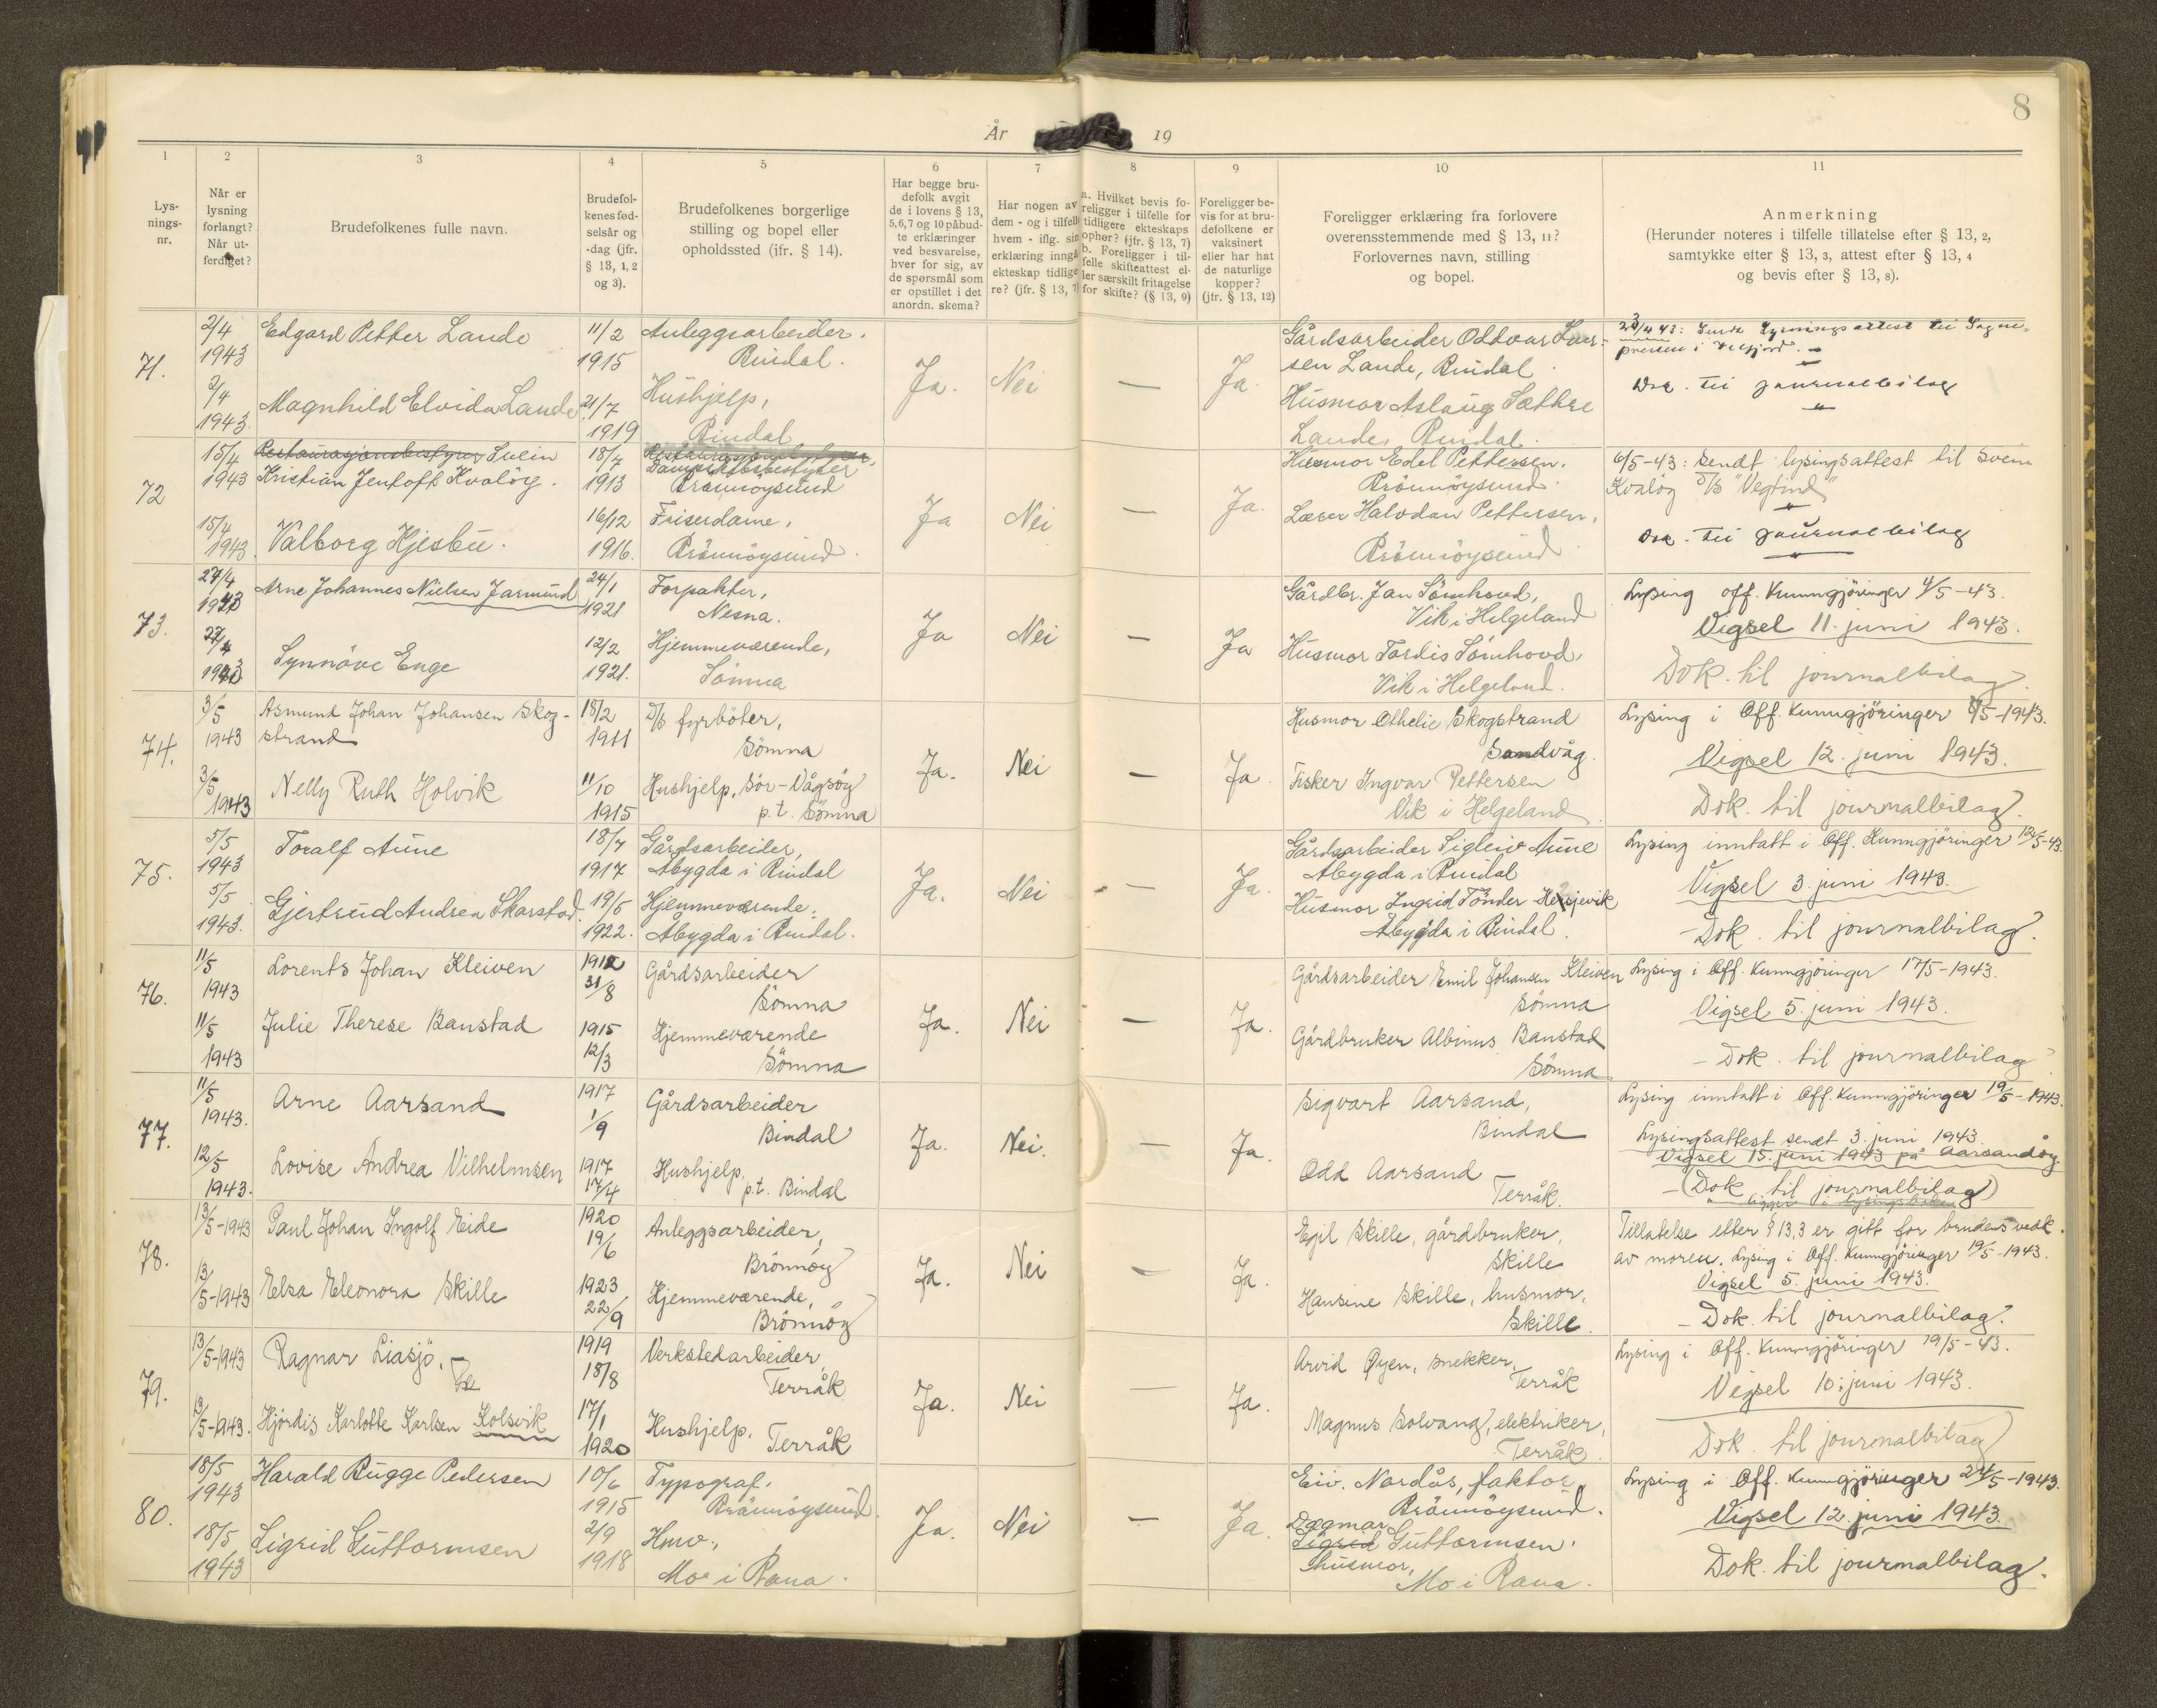 8
År 19
1
2
3
4
5
6
7
8
9
10
11
Lys-
nings-
nr.
Når er
lysning
forlangt?
Når ut-
ferdiget?
Brudefolkenes fulle navn.
Brudefol-
kenes fød-
selsår og
-dag (jfr.
§ 13, 1, 2
og 3).
Brudefolkenes borgerlige
stilling og bopel eller
opholdssted (ifr. § 14).
Har begge bru-
defolk avgit
de i lovens § 13,
5,6,7 og 10 påbud-
te erklæringer
ved besvarelse,
hver for sig, av
de spørsmål som
er opstillet i det
anordn. skema?
Har nogen av
dem - og i tilfell
hvem - iflg. sin
erklæring inngå
ekteskap tidlige
re? (jfr. § 13, 7
a. Hvilket bevis fo-
religger i tilfelle for
tidligere ekteskaps
ophør? (jfr. § 13, 7)
b. Foreligger i til-
felle skifteattest el-
ler særskilt fritagelse
for skifte? (§ 13, 9)
Foreligger be-
vis for at bru-
defolkene er
vaksinert
eller har hat
de naturlige
kopper?
(jfr. § 13, 12)
Foreligger erklæring fra forlovere
overensstemmende med § 13, 11?
Forlovernes navn, stilling
og bopel.
Anmerkning
(Herunder noteres i tilfelle tillatelse efter § 13, 2,
samtykke efter § 13, 3, attest efter § 13, 4
og bevis efter § 13, 8).
71.
2/4
1943
Edgard Petter Lande
11/2
1915
Anleggsarbeider.
Bindal.
2/4
1943
Magnhild Elvida Lande
21/7
1919
Hushjelp,
Bindal
Ja.
Nei
—
Ja
Gårdsarbeider Oddvar Laur-
sen Lande, Bindal.
Husmor Aslaug Sæthre
Lande, Bindal.
23/4 43: Sendt Lysningsattest til Sogne-
presten i Velfjord. —
Dok. til journalbilag
72
15/4
1943
Restaurasjonsbestyrer Svein
Kristian Jentoft Kvaløy.
18/7
1913
Restaurasjonsbestyrer.
Dampskibsbestyrer
Brönnöysund
15/4
1943
Valborg Hjesbu.
16/12
1916.
Friserdame,
Brönnöysund.
Ja
Nei
—
Ja.
Husmor Edel Pettersen.
Brönnöysund.
Lærer Halvdan Pettersen,
Brönnöysund
6/5-43: Sendt lysingsattest til Svein
Kvalöy D/S "Vegtind"
Dok. til journalbilag
73.
27/4
1943
Arne Johannes Nielsen Jarmund
24/1
1921
Forpakter,
Nesna.
27/4
1943
Synnöve Enge
12/2
1921.
Hjemmeværende,
Sömna
Ja
Nei
—
Ja
Gårdbr. Jan Sömhovd,
Vik i Helgeland
Husmor Tordis Sömhovd,
Vik i Helgeland.
Lysing off. Kunngjöringer 4/5-43.
Vigsel 11. juni 1943.
Dok. til journalbilag.
74.
3/5
1943
Asmund Johan Johansen Skog-
strand
18/2
1911
D/S fyrböter,
Sömna
3/5
1943
Nelly Ruth Holvik
11/10
1915
Hushjelp, Sör-Vågsöy
p.t. Sömna
Ja.
Nei
—
Ja
Husmor Othelie Skogstrand
Sandvåg.
Fisker Ingvar Pettersen
Vik i Helgeland.
Lysing i Off. Kunngjöringer 8/5-1943.
Vigsel 12. juni 1943.
Dok. til journalbilag.
75.
5/5
1943
Toralf Aune
18/7
1917
Gårdsarbeider,
Åbygda i Bindal
5/5
1943.
Gjertrud Andrea Skarstad.
19/5
1922.
Hjemmeværende.
Åbygda i Bindal.
Ja.
Nei
—
Ja.
Gårdsarbeider Sigleiv Aune
Åbygda i Bindal
Husmor Ingrid Tönder Heisjevik
Åbygda i Bindal.
Lysing inntatt i Off. Kunngjöringer 12/5-43.
Vigsel 3. juni 1943.
- Dok. til journalbilag.
76.
11/5
1943
Lorents Johan Kleiven
1912
31/8
Gårdsarbeider
Sömna
11/5
1943
Julie Therese Banstad
1915
12/3
Hjemmeværende
Sömna
Ja.
Nei
—
Ja.
Gårdsarbeider Emil Johansen Kleiven
Sömna
Gårdbruker Albinus Banstad
Sömna
Lysing i Off. Kunngjöringer 17/5-1943.
Vigsel 5. juni 1943.
- Dok. til journalbilag
77.
11/5
1943.
Arne Aarsand
1917
1/9
Gårdsarbeider
Bindal
12/5
1943.
Lovise Andrea Vilhelmsen
1917
17/4
Hushjelp,
p.t. Bindal
Ja.
Nei.
—
Ja.
Sigvart Aarsand,
Bindal
Odd Aarsand —
Terråk.
Lysing inntatt i Off. Kunngjöringer 19/5-1943.
Lysingsattest sendt 3. juni 1943.
Vigsel 15. juni 1943 på Aarsandöy
- (Dok. til journalbilag)
78.
13/5-1943
Paul Johan Ingolf Eide
1920
19/6
Anleggsarbeider,
Brönnöy
13/5-1943
Elsa Eleonora Skille
1923
22/9
Hjemmeværende,
Brönnöy
Ja.
Nei
—
Ja.
Egil Skille, gårdbruker,
Skille
Hansine Skille, husmor,
Skille.
Tillatelse etter § 13,3 er gitt for brudens vedk.
av moren. Lysing i Off. Kunngjöringer 19/5-1943.
Vigsel 5. juni 1943.
- Dok. til journalbilag.
79.
13/5-1943
Ragnar Liasjö.
1919
18/8
Verkstedarbeider,
Terråk
13/5-1943.
Hjördis Karlotte Karlsen Kolsvik
17/1
1920
Hushjelp. Terråk
Ja.
Nei
—
Ja.
Arvid Øyen, snekker,
Terråk
Magnus Solvang, elektriker,
Terråk.
Lysing i Off. Kunngjöringer 19/5-43.
Vigsel 10. juni 1943.
Dok. til journalbilag
80.
18/5
1943
Harald Bugge Pedersen
10/6
1915
Typograf.
Brönnöysund.
18/5
1943
Sigrid Guttormsen
2/9
1918
Hmv.,
Mo i Rana.
Ja.
Nei
—
Ja.
Eiv. Nordås, faktor,
Brönnöysund.
Dagmar
Sigrid Guttormsen.
husmor,
Mo i Rana.
Lysing i Off. Kunngjöringer 24/5-1943.
Vigsel 12. juni 1943.
Dok. til journalbilag.